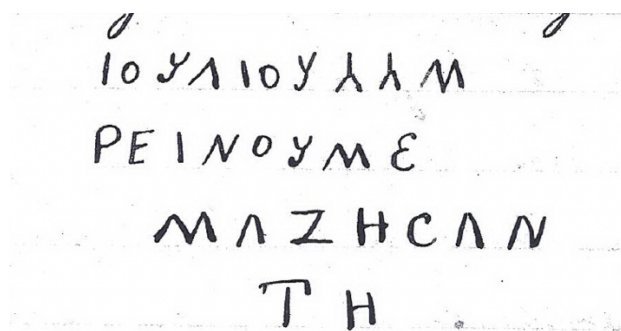 ΙΟΥΛΙΟΥ⅄⅄Μ
ΡΕΙΝΟΥΜΕ
ΜΛΖΗCΛΝ
ΤΗ